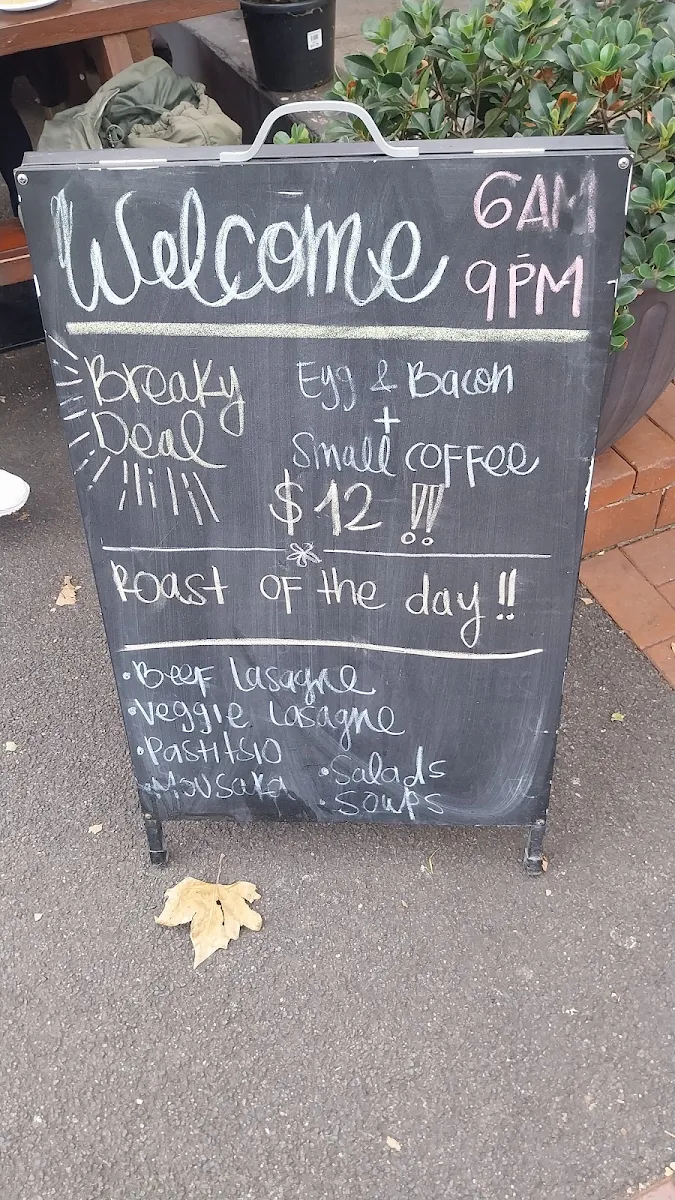 Welcome
6AM
9PM
Breaky
Deal
Egg & Bacon
+
Small coffee
$12 !!!
Roast of the day!!
• Beef Lasagne
• Veggie Lasagne
• Pastitsio
• Mousaka
• Salads
• Soups